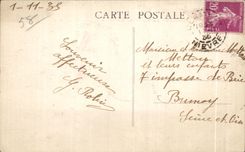 1-11-35
58
CARTE POSTALE
NIEVRE
Souvenir
affectueux
G. Robin
Monsieur et Madame
Mettau
et leurs enfants
7 impasse de Brie
Brunoy
Seine et Oise